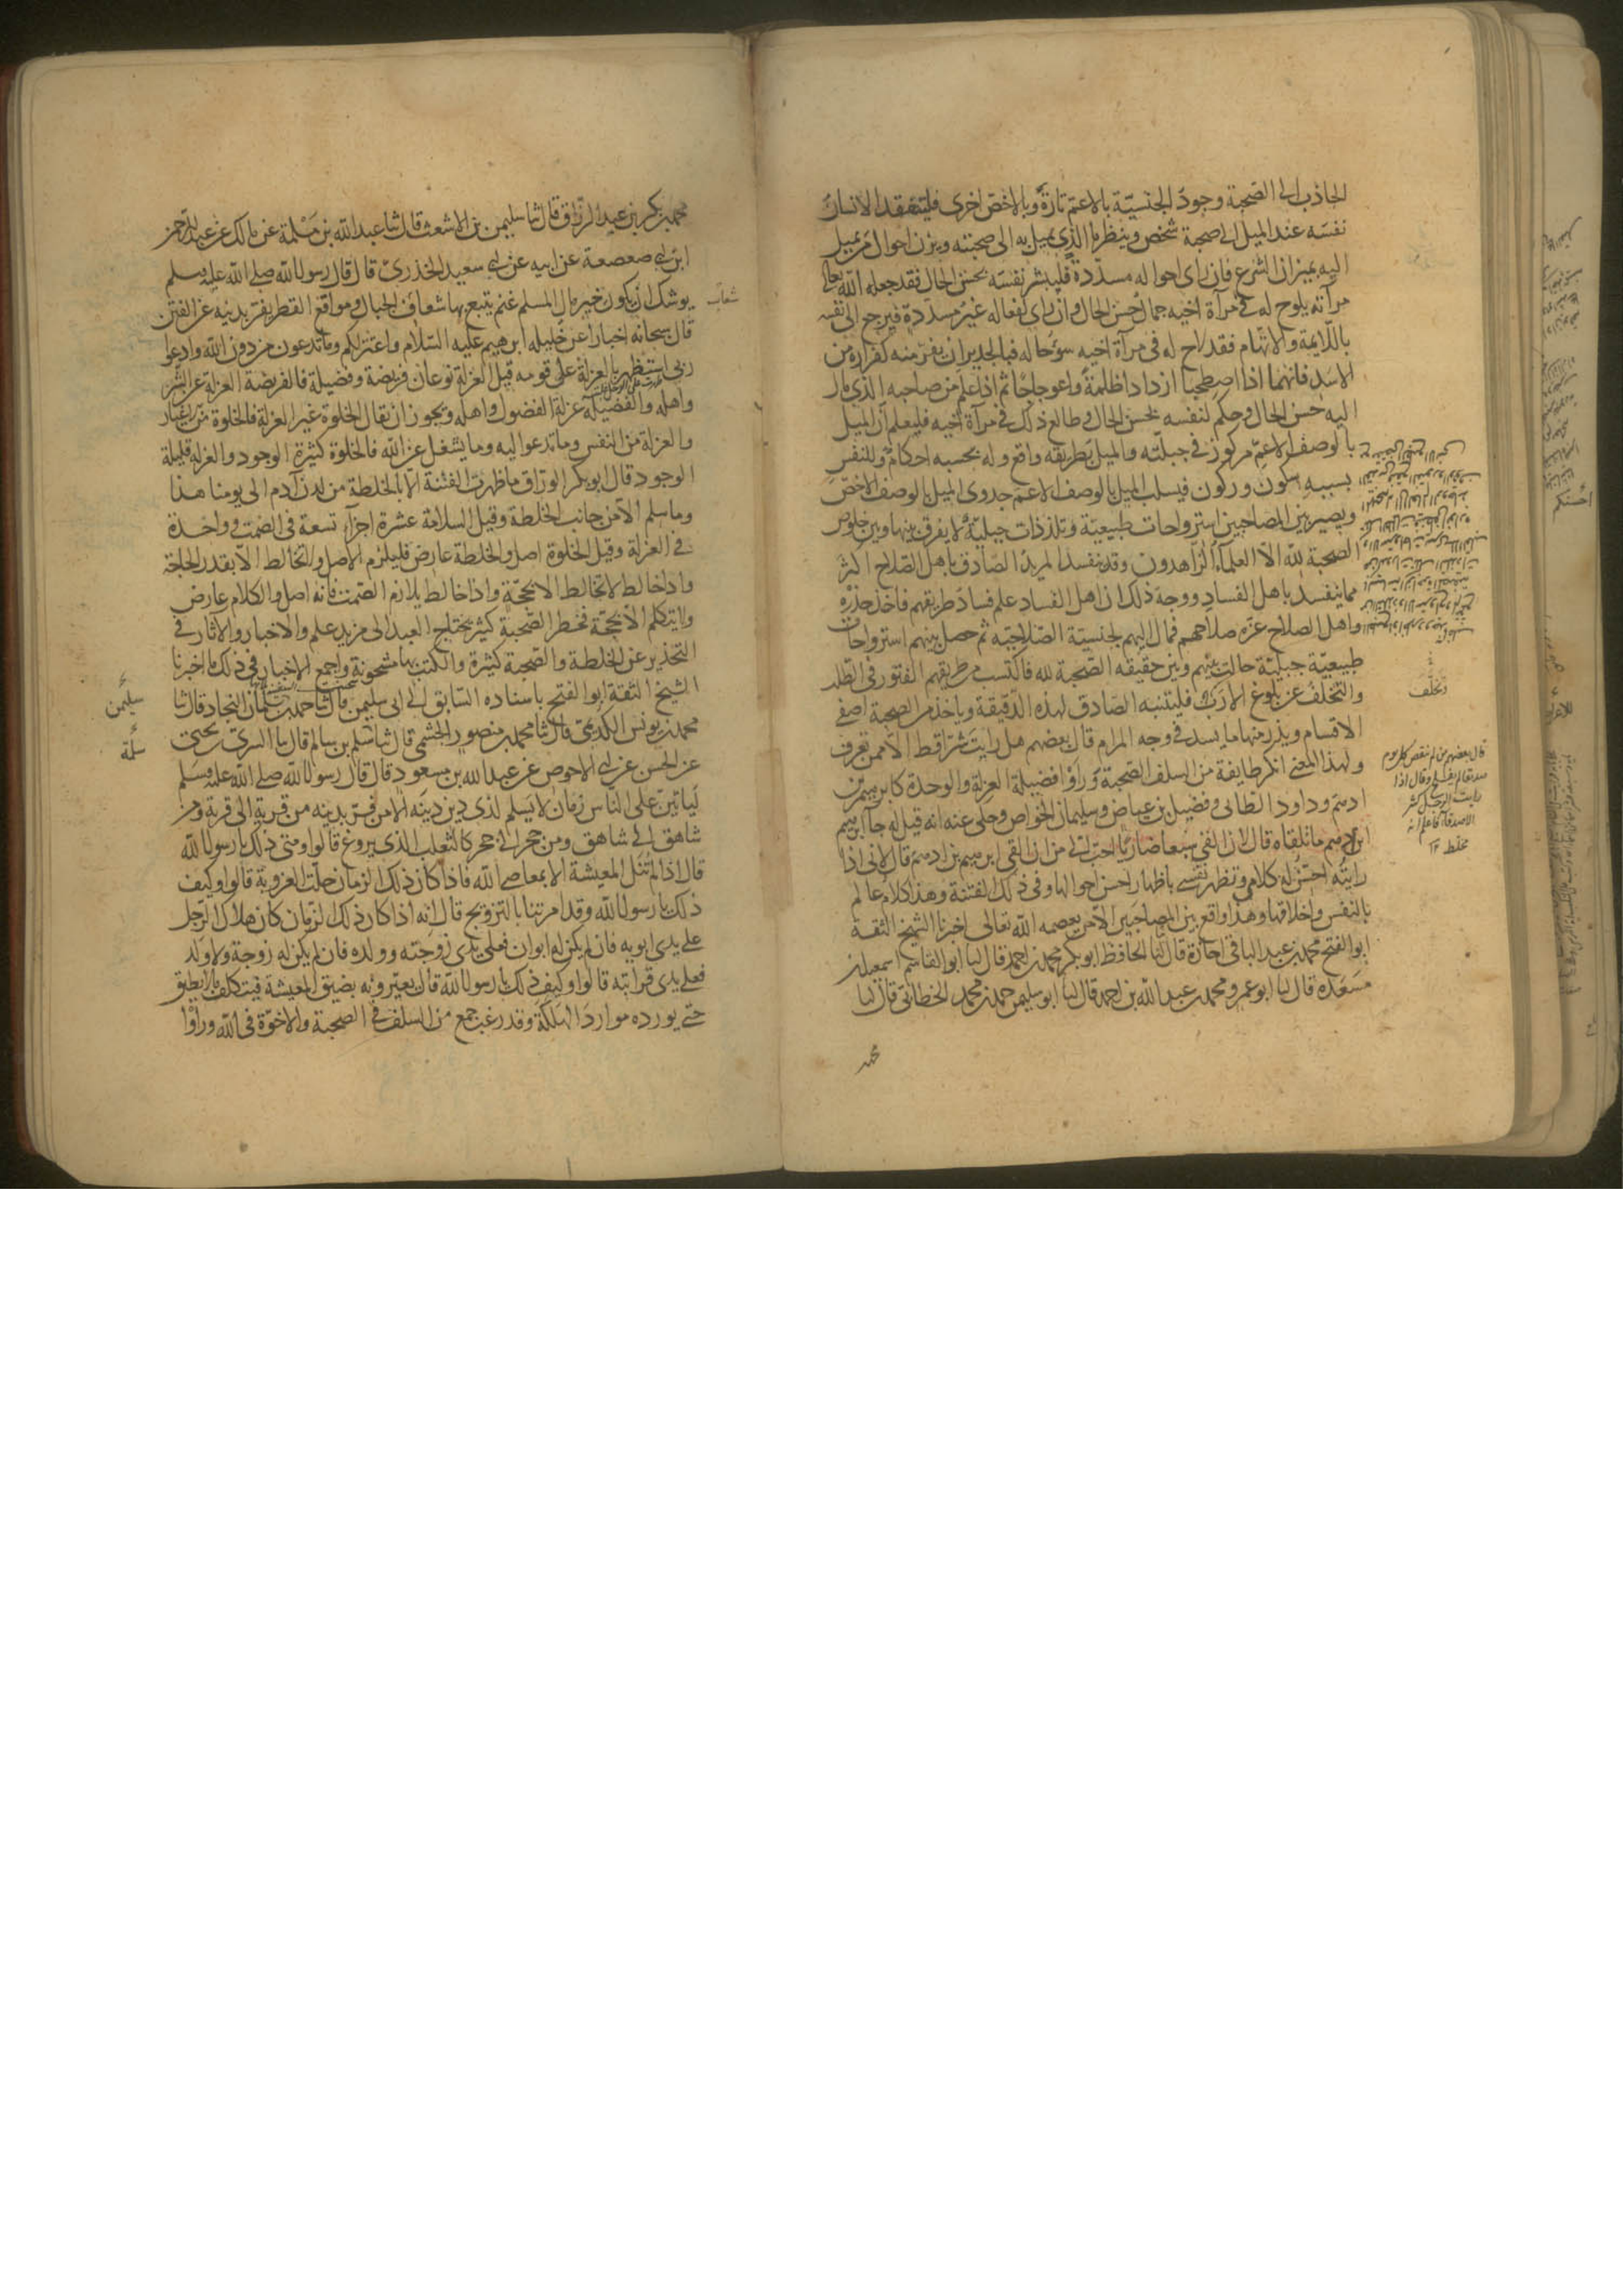 الجاذب الى الصحبة وجود الجنسيّة بالاعمّ تارةً وبالاخصّ اخرى فليتفقد الانسان
نفسه عند الميل الى صحبة شخص وينظر ما الذى يميل به الى صحبته ويزن احوال من يميل
اليه بميزان الشرع فان راى احواله مسدّدة فليبشر نفسه بحسن الحال فقد جعله الله تعالى
مرآته يلوح له فى مرآة اخيه جمال حُسن الحال وان راى افعاله غير مسدّدة فيرجع الى نفسه
باللّايمة والاتهام فقد لاح له فى مرآة اخيه سوء حاله فبالجدير ان يفرّ منه كفراره من
الاسد فانهما اذا اصطحبا ازدادا ظلمةً واعوجاجًا ثم اذا علم من صاحبه الذى مال
اليه حسن الحال وحكم لنفسه بحسن الحال وطالع ذلك فى مرآة اخيه فليعلم ان الميل
بالوصف الاعمّ مركوز فى جبلّته والميل بطريقه واقع وله بحسبه احكام وللنفس
بسببه سكون وركون فيسلب الميل بالوصف الاعم جدوى الميل بالوصف الاخصّ
ويصير بين المصاحبين استرواحات طبيعيّة وتلذذات جبليّة لا يفرق بينها وبين خلوص
الصحبة لله الا العلماء الزاهدون وقد ينفسد المريد الصّادق باهل الصّلاح اكثر
مما ينفسد باهل الفساد ووجه ذلك ان اهل الفساد علم فساد طريقهم فاخذ حذره
واهل الصلاح غرّه صلاحهم فمال اليهم بجنسيّة الصّلاحيّة ثم حصل بينهم استرواحات
طبيعيّة جبليّة حالت بينهم وبين حقيقة الصحبة لله فاكتسب من طريقهم الفتور فى الطلب
والتخلف عن بلوغ الارب فليتنبه الصّادق لهذه الدّقيقة وياخذ من الصحبة اصفى
الاقسام ويذر منها ما يسد فى وجه المرام قال بعضهم هل رايت شرّا قط الا ممن تعرف
ولهذا المعنى انكر طايفة من السلف الصّحبة وراوا فضيلة العزلة والوحدة كابرهيم بن
ادهم وداود الطائى وفضيل بن عياض وسليمان الخواص وحكى عنه انه قيل له جا ابرهيم
ابن ادهم ما تلقاه قال لان القى سبعا ضاريًا احبّ الى من ان القى ابرهيم بن ادهم قال لانى اذا
رايته احسّن له كلامى وتظهر نفسى باظهار احسن احوالها وفى ذلك الفتنة وهذا كلام عالم
بالنفس واخلاقها وهذا واقع بين المصاحبين الا من يعصمه الله تعالى اخبرنا الشيخ الثقة
ابو الفتح محمد بن عبد الباقى اجازة قال انا الحافظ ابو بكر محمد بن احمد قال انا ابو القاسم اسمعيل بن
مسعدة قال انا ابو عمرو محمد بن عبد الله بن احمد قال انا ابو سليمن حمد بن محمد الخطابى قال انا
محمد
وتخلّف
قال بعضهم من لم ينقص كل يوم
صديقا لم يفلح وقال اذا
رايت الرجل كثير
الاصدقا فاعلم انه
مخلط
محمد بن بكر بن عبد الرزاق قال ثنا سليمن بن الاشعث قال ثنا عبد الله بن مَسْلَمة عن مالك عن عبد الرحمن
ابن ابى صعصعة عن ابيه عن ابى سعيد الخدرى قال قال رسول الله صلى الله عليه وسلم
يوشك ان يكون خير مال المسلم غنم يتبع بها شعاف الجبال ومواقع القطر يفر بدينه عن الفتن
قال سبحانه اخبارا عن خليله ابرهيم عليه السّلام واعتزلكم وما تدعون من دون الله وادعوا
ربى استظهر بالعزلة على قومه قيل العزلة نوعان فريضة وفضيلة فالفريضة العزلة عن الشر
واهله والفضيلة عزلة الفضول واهله ويجوز ان يقال الخلوة غير العزلة فالخلوة من الاغيار
والعزلة من النفس وما تدعوا اليه وما يشغل عن الله فالخلوة كثيرة الوجود والعزلة قليلة
الوجود قال ابو بكر الورّاق ما ظهرت الفتنة الا بالخلطة من لدن آدم الى يومنا هذا
وما سلم الا من جانب الخلطة وقيل السلامة عشرة اجزآء تسعة فى الصمت وواحدة
فى العزلة وقيل الخلوة اصل والخلطة عارض فليلزم الاصل ولا تخالط الا بقدر الحاجة
واذا خالط لا تخالط الا بحجّة واذا خالط يلازم الصّمت فانه اصل والكلام عارض
ولا يتكلم الا بحجّة فخطر الصّحبة كثير يحتاج العبد الى مزيد علم والاخبار والآثار فى
التحذير عن الخلطة والصّحبة كثيرة والكتب بها مشحونة واجمع الاخبار فى ذلك ما اخبرنا
الشيخ الثقة ابو الفتح باسناده السّابق الى ابى سليمن قال ثنا احمد بن سلمان النجاد قال ثنا
محمد بن يونس الكديمى قال ثنا محمد بن منصور الجشمى قال ثنا سَلم بن سالم قال ثنا السرىّ بن يحيى
عن الحسن عن ابى الاحوص عن عبد الله بن مسعود قال قال رسول الله صلى الله عليه وسلم
ليأتينّ على الناس زمان لا يسلم لذى دين دينه الا من فرّ بدينه من قرية الى قرية ومن
شاهق الى شاهق ومن جحر الى جحر كالثعلب الذى يروغ قالوا ومتى ذلك يا رسول الله
قال اذا لم تُنَل المعيشة الا بمعاصى الله فاذا كان ذلك الزمان حلّت العزوبة قالوا وكيف
ذلك يا رسول الله وقد امرتنا بالتزويج قال انه اذا كان ذلك الزمان كان هلاك الرّجل
على يدى ابويه فان لم يكن له ابوان فعلى يدى زوجته وولده فان لم يكن له زوجة ولا ولد
فعلى يدى قرابته قالوا وكيف ذلك يا رسول الله قال يعيّرونه بضيق المعيشة فيتكلف ما لا يطيق
حتى يورده موارد الهلكة وقد رغب جمع من السلف فى الصحبة والاخوّة فى الله وراوا
شعاب
سليمن
سلمة